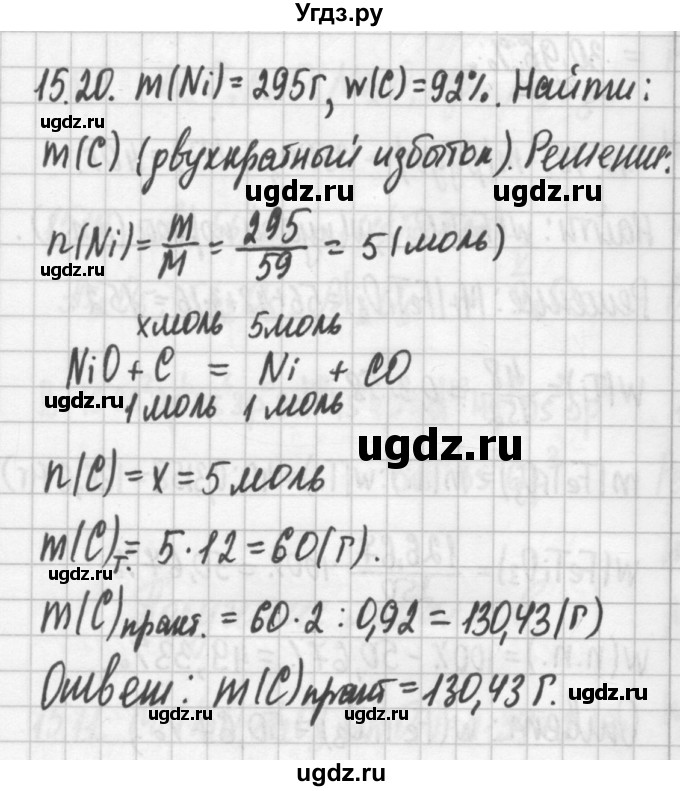 Угдз.ру
15.20. m(Ni) = 295г, w(C) = 92%. Найти:
ugdz.ru
m(C) (двухкратный избыток). Решение:
ugdz.ru
ugdz.ru
n(Ni) = m/M = 295/59 = 5 (моль)
x моль 5 моль
NiO + C = Ni + CO
ugdz.ru
1 моль 1 моль
ugdz.ru
n(C) = x = 5 моль
m(C)т. = 5 · 12 = 60 (г).
ugdz.ru
m(C)практ. = 60 · 2 : 0,92 = 130,43 (г)
Ответ: m(C)практ = 130,43 г.
ugdz.ru
ugdz.ru
ugdz.ru
ugdz.ru